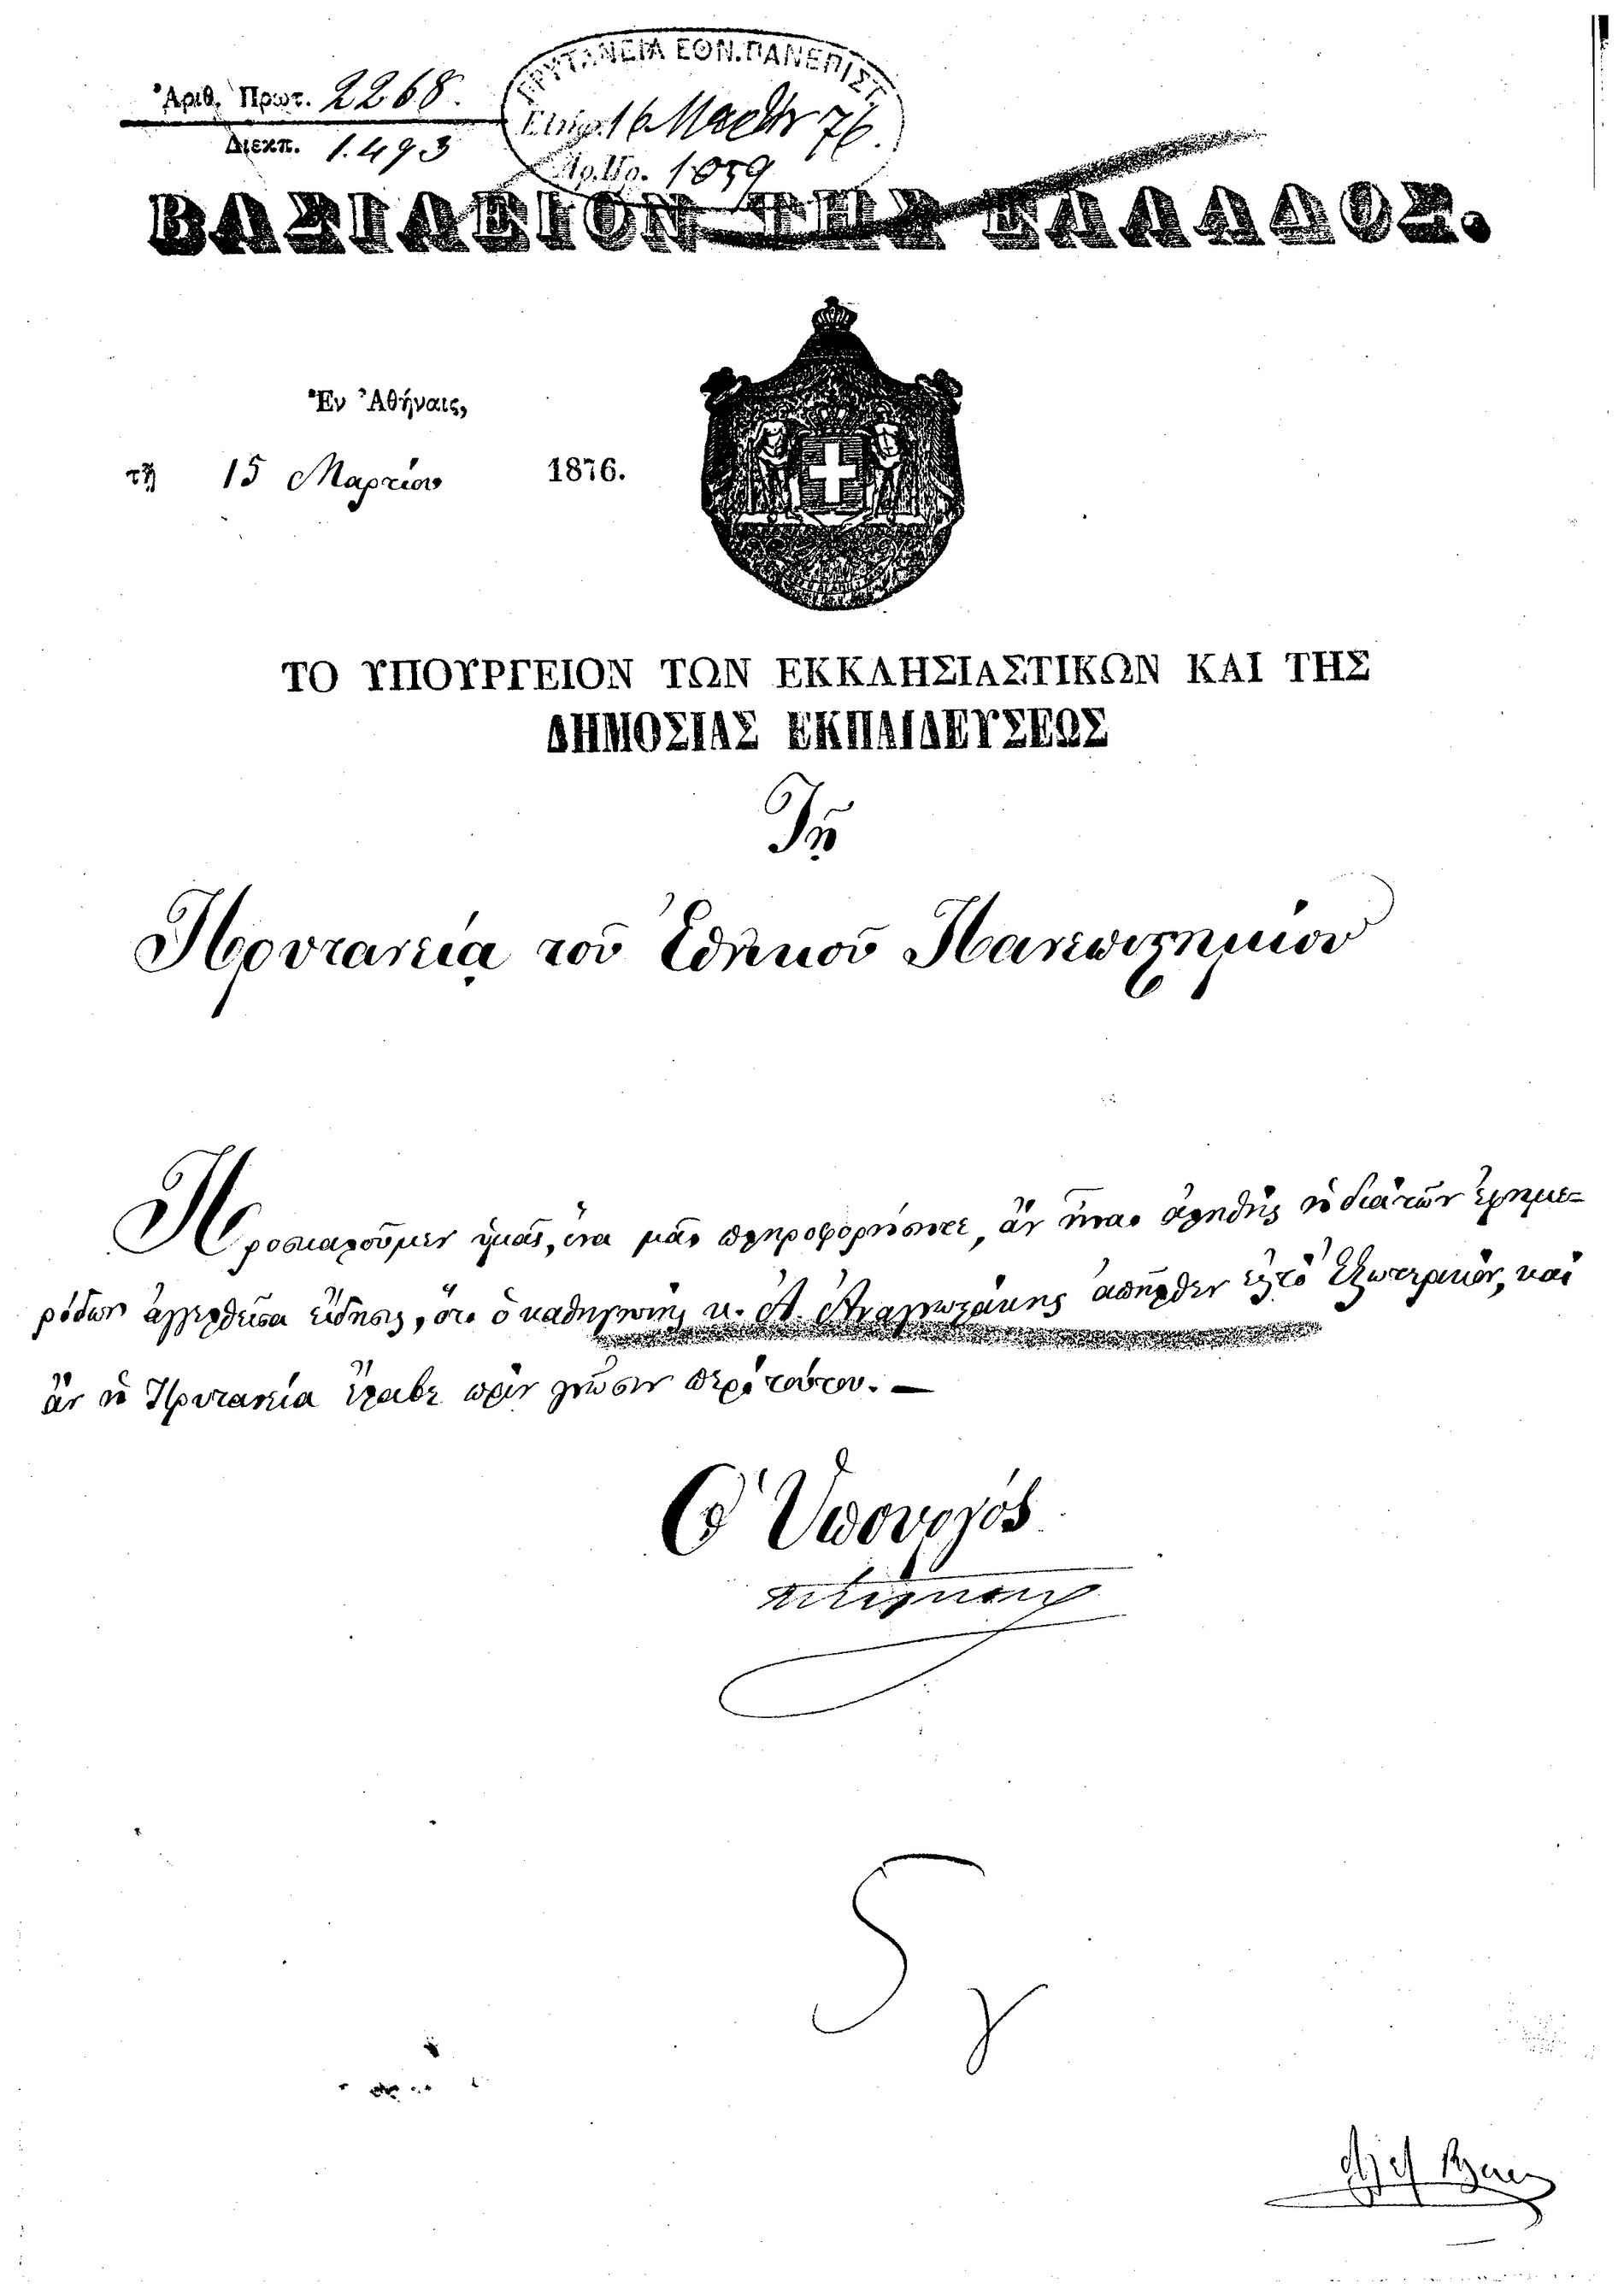 Ἀριθ. Πρωτ. 2268.
Διεκπ. 1.493
ΠΡΥΤΑΝΕΙΑ ΕΘΝ. ΠΑΝΕΠΙΣΤ.
16 76.
Αρ. Πρ. 1059
ΒΑΣΙΛΕΙΟΝ ΤΗΣ ΕΛΛΑΔΟΣ.
Ἐν Ἀθήναις,
τῇ 15 Μαρτίου 1876.
ΤΟ ΥΠΟΥΡΓΕΙΟΝ ΤΩΝ ΕΚΚΛΗΣΙΑΣΤΙΚΩΝ ΚΑΙ ΤΗΣ
ΔΗΜΟΣΙΑΣ ΕΚΠΑΙΔΕΥΣΕΩΣ
Τῇ
Πρυτανείᾳ τοῦ Ἐθνικοῦ Πανεπιστημίου
Προσκαλοῦμεν ὑμᾶς, ἵνα μᾶς πληροφορήσητε, ἂν ἦναι ἀληθὴς ἡ διὰ τῶν ἐφημε-
ρίδων ἀγγελθεῖσα εἴδησις, ὅτι ὁ καθηγητὴς κ. Α. Ἀναγνωστάκης ἀπῆλθεν εἰς τὸ Ἐξωτερικὸν, καὶ
ἂν ἡ Πρυτανεία ἔλαβε πρὶν γνῶσιν περὶ τούτου. —
Ὁ Ὑπουργός